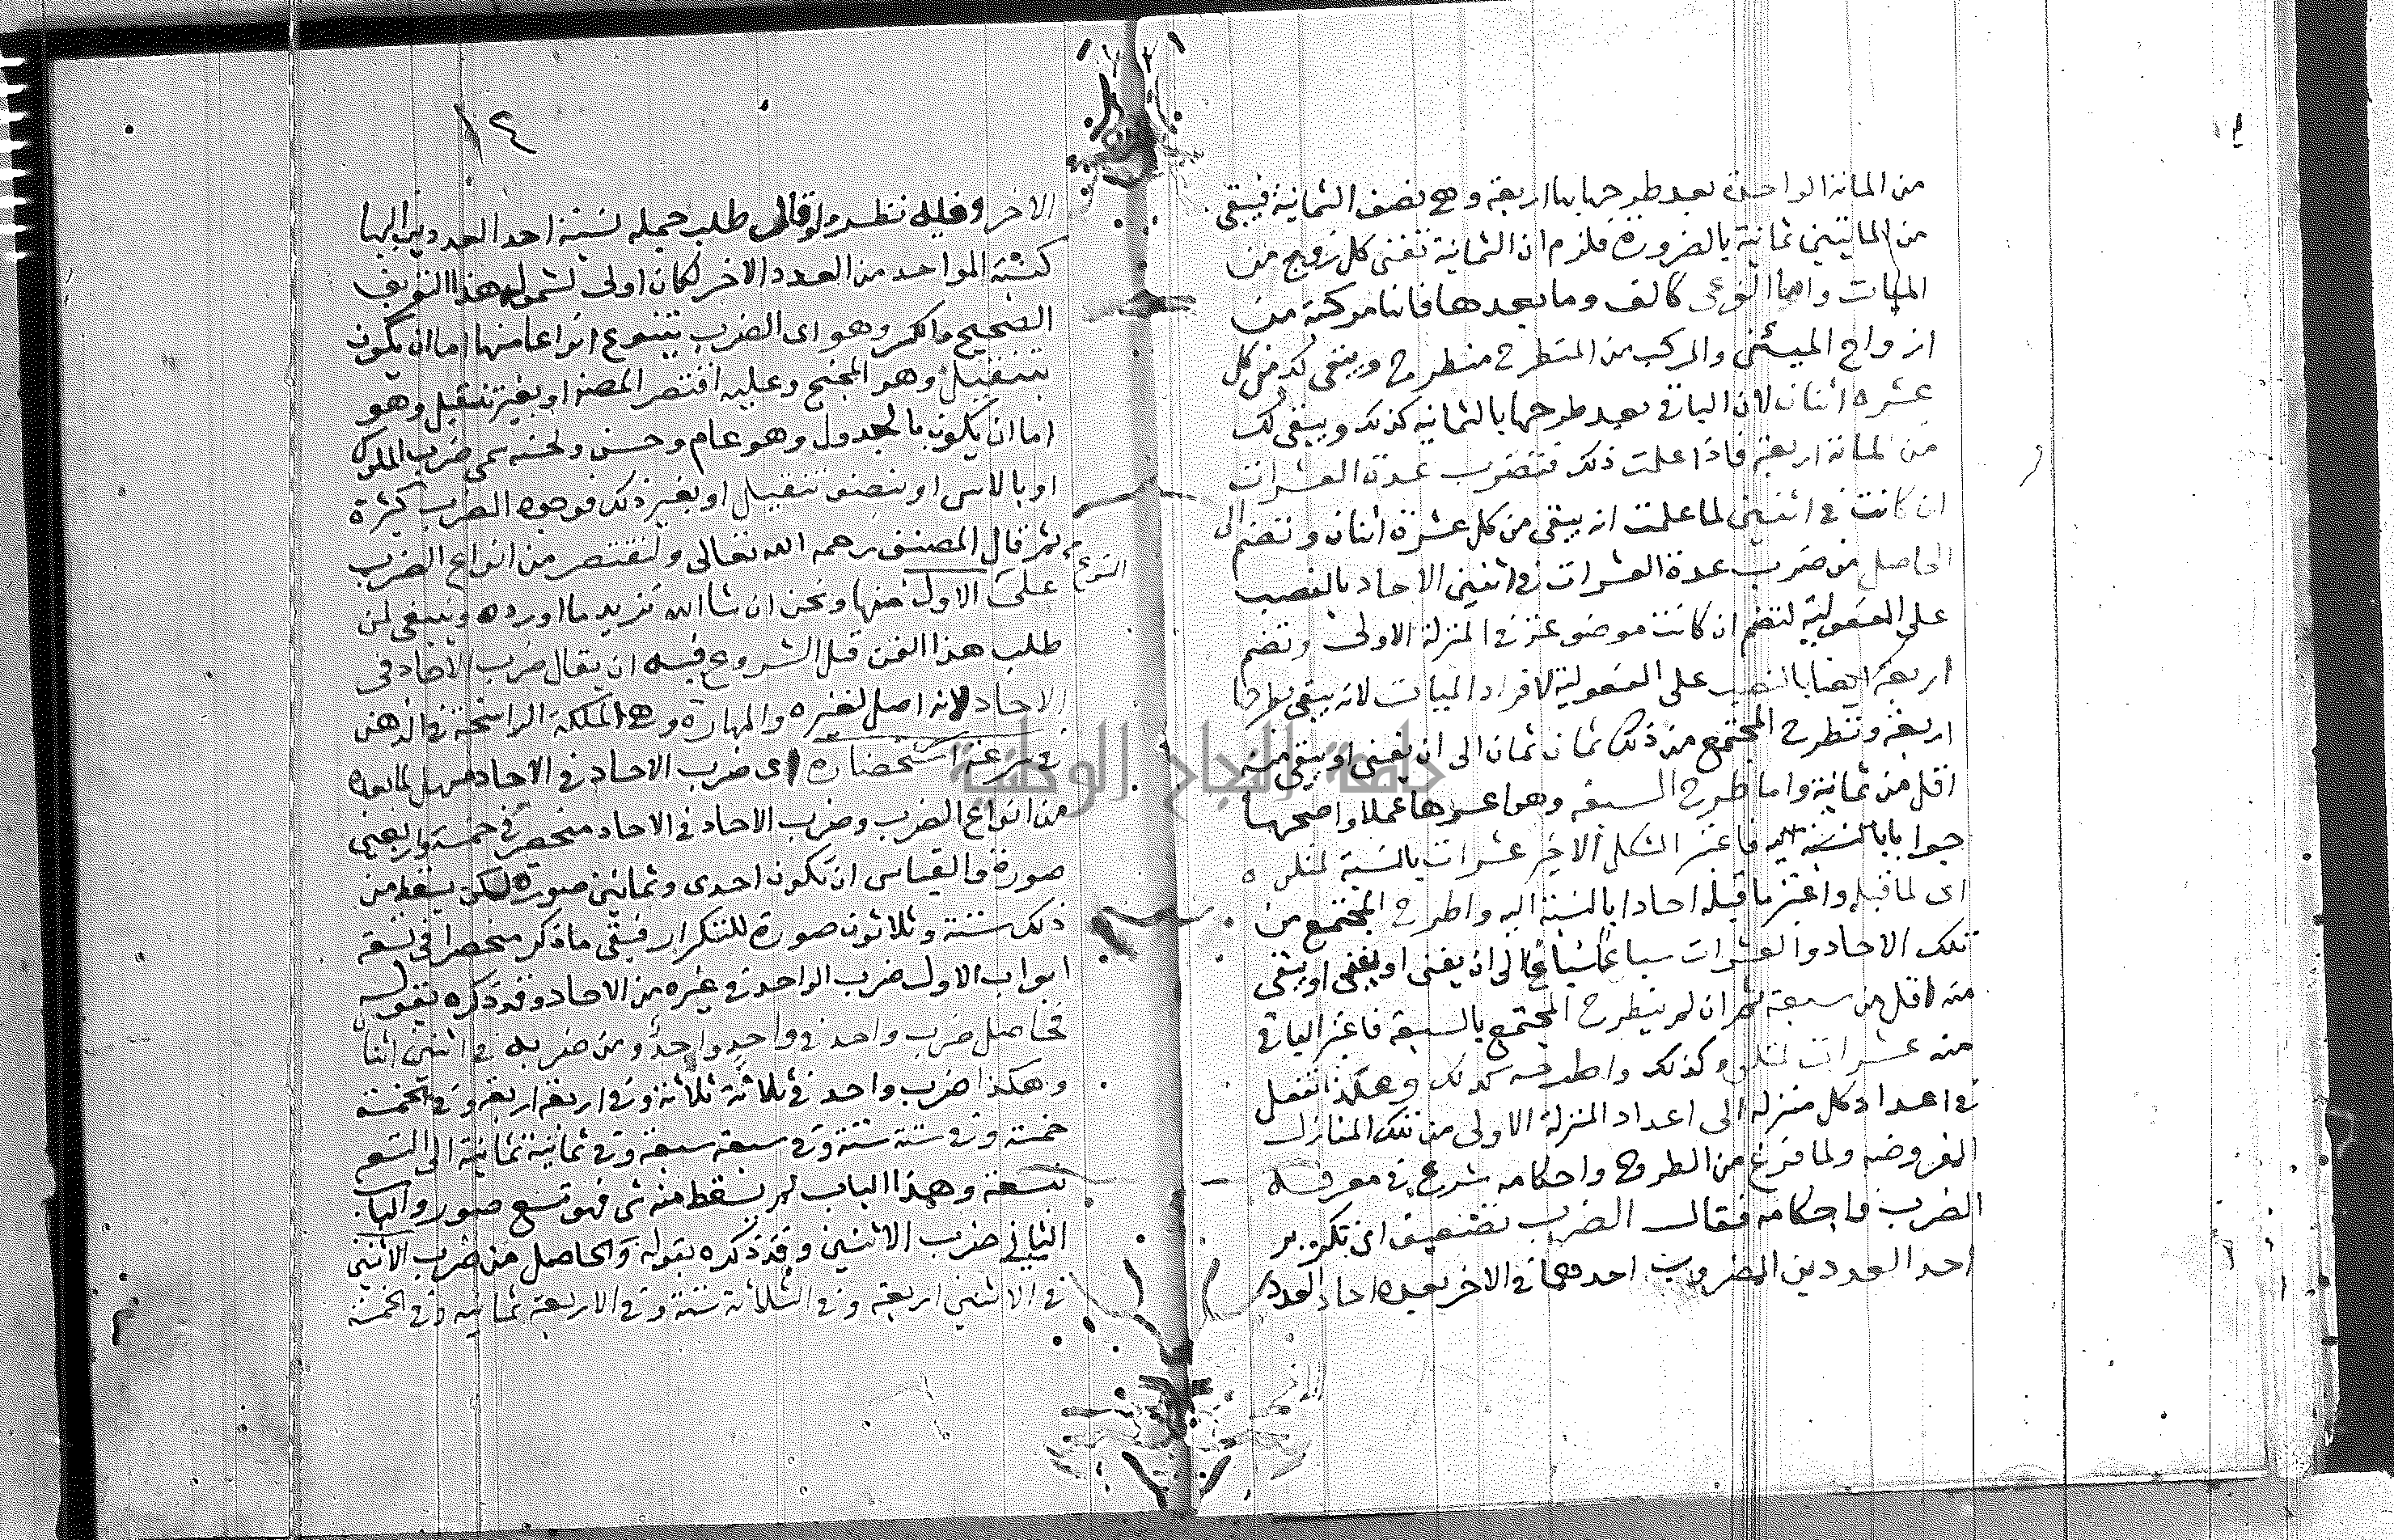 من المائة الواحدة بعد طرحها بها اربعة وهي نصف الثمانية فيبقى
من المايتين ثمانية بالضرورة فلزم ان الثمانية تفنى كل زوج من
الميات واما الفرعي كالف وما بعدها فانها مركبة من
ازواج الميئين والمركب من المنطرح منطرح ويبقى لك من كل
عشره اثنان لان الباقي بعد طرحها بالثمانيه كذلك ويبقى لك
من المائة اربعة فاذا علمت ذلك فتضرب عدة العشرات
ان كانت في اثنين لما علمت انه يبقى من كل عشرة اثنان وتضم الى
الحاصل من ضرب عدة العشرات في اثنين الاحاد بالنصب
على المفعولية لتضم ان كانت موضوعة في المنزلة الاولى وتضم
اربعة ايضا بالنصب على المفعولية لافراد الميات لانه يبقى بطرحها
اربعة وتطرح المجتمع من ذلك ثمان ثمان الى ان يفنى او يبقى منه
اقل من ثمانية واما طرح السبعه وهو اعسرها عملا واصحها
جوابا بالنسبة اليه فاعتبر الشكل الاخير عشرات بالنسبة لمتلوه
اى لما قبله واعتبر ما قبله احادا بالنسبة اليه واطرح المجتمع من
تلك الاحاد والعشرات سباعا سباعا الى ان يفنى او يفنى او يبقى
منه اقل من سبعة ثم ان لم ينطرح المجتمع بالسبعة فاعتبر الباقي
منه عشرات لمتلوه كذلك واطرحه كذلك وهكذا تفعل
في اعداد كل منزله الى اعداد المنزلة الاولى من تلك المنازل
المفروضه ولما فرغ من الطروح واحكامه شرع في معرفة
الضرب واحكامه فقال الضرب تضعيف اى تكرير
احد العددين المضروب احدهما في الاخر بعدة احاد العدد
١٢
الاخر وفيه نظر ولو قال طلب جمله نسبة احد العددين اليها
كنسبة الواحد من العدد الاخر لكان اولى لشموله هذا التعريف
الصحيح والكسر وهو اى الضرب يتنوع انواعا منها اما ان يكون
بتنقيل وهو المجنح وعليه اقتصر المصنف او بغير تنقيل وهو
اما ان يكون بالجدول وهو عام وحسن ولحسنه سمي ضرب الملوك
او بالاس او بنصف تنقيل او بغير ذلك فوجوه الضرب كثيرة
ثم قال المصنف رحمه الله تعالى ولنقتصر من انواع الضرب
على النوع الاول منها ونحن ان شا الله نزيد ما اورده وينبغى لمن
طلب هذا الفن قبل الشروع فيه ان يقال ضرب الاحاد فى
الاحاد لانه اصل لغيره والمهارة وهي الملكة الراسخة في الذهن
في سرعة استحضاره اى ضرب الاحاد في الاحاد مسهل لما بعده
من انواع الضرب وضرب الاحاد في الاحاد منحصر في خمسة واربعين
صورة والقياس ان تكون احدى وثمانين صورة لكن يسقط من
ذلك ستة وثلاثون صورة للتكرار فبقى ما ذكر منحصرا في تسعة
ابواب الاول ضرب الواحد في غيره من الاحاد وقد ذكره بقوله
فحاصل ضرب واحد في واحد واحد ومن ضربه في اثنين اثنان
وهكذا ضرب واحد في ثلاثة ثلاثة وفي اربعة اربعة وفي الخمسة
خمسة وفي ستة ستة وفي سبعة سبعة وفي ثمانية ثمانية الى التسع
تسعة وهذا الباب لم يسقط منه شى فهو تسع صور والباب
الثاني ضرب الاثنين وقد ذكره بقوله والحاصل من ضرب الاثنين
في الاثنين اربعة وفي الثلاثة ستة وفي الاربعة ثمانية وفي الخمسة
جامعة النجاح الوطنية